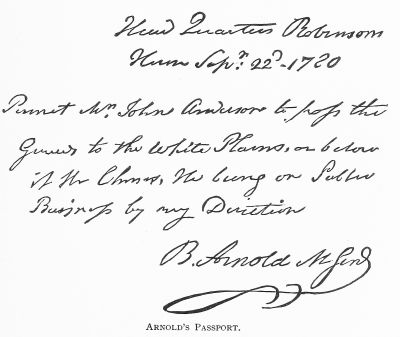 Head Quarters Robinsons
House Sepr. 22d. 1780
Permit Mr. John Anderson to pass the
Guards to the White Plains, or below
if He Chuses. He being on Public
Business by my Direction
B. Arnold M Genl
ARNOLD'S PASSPORT.